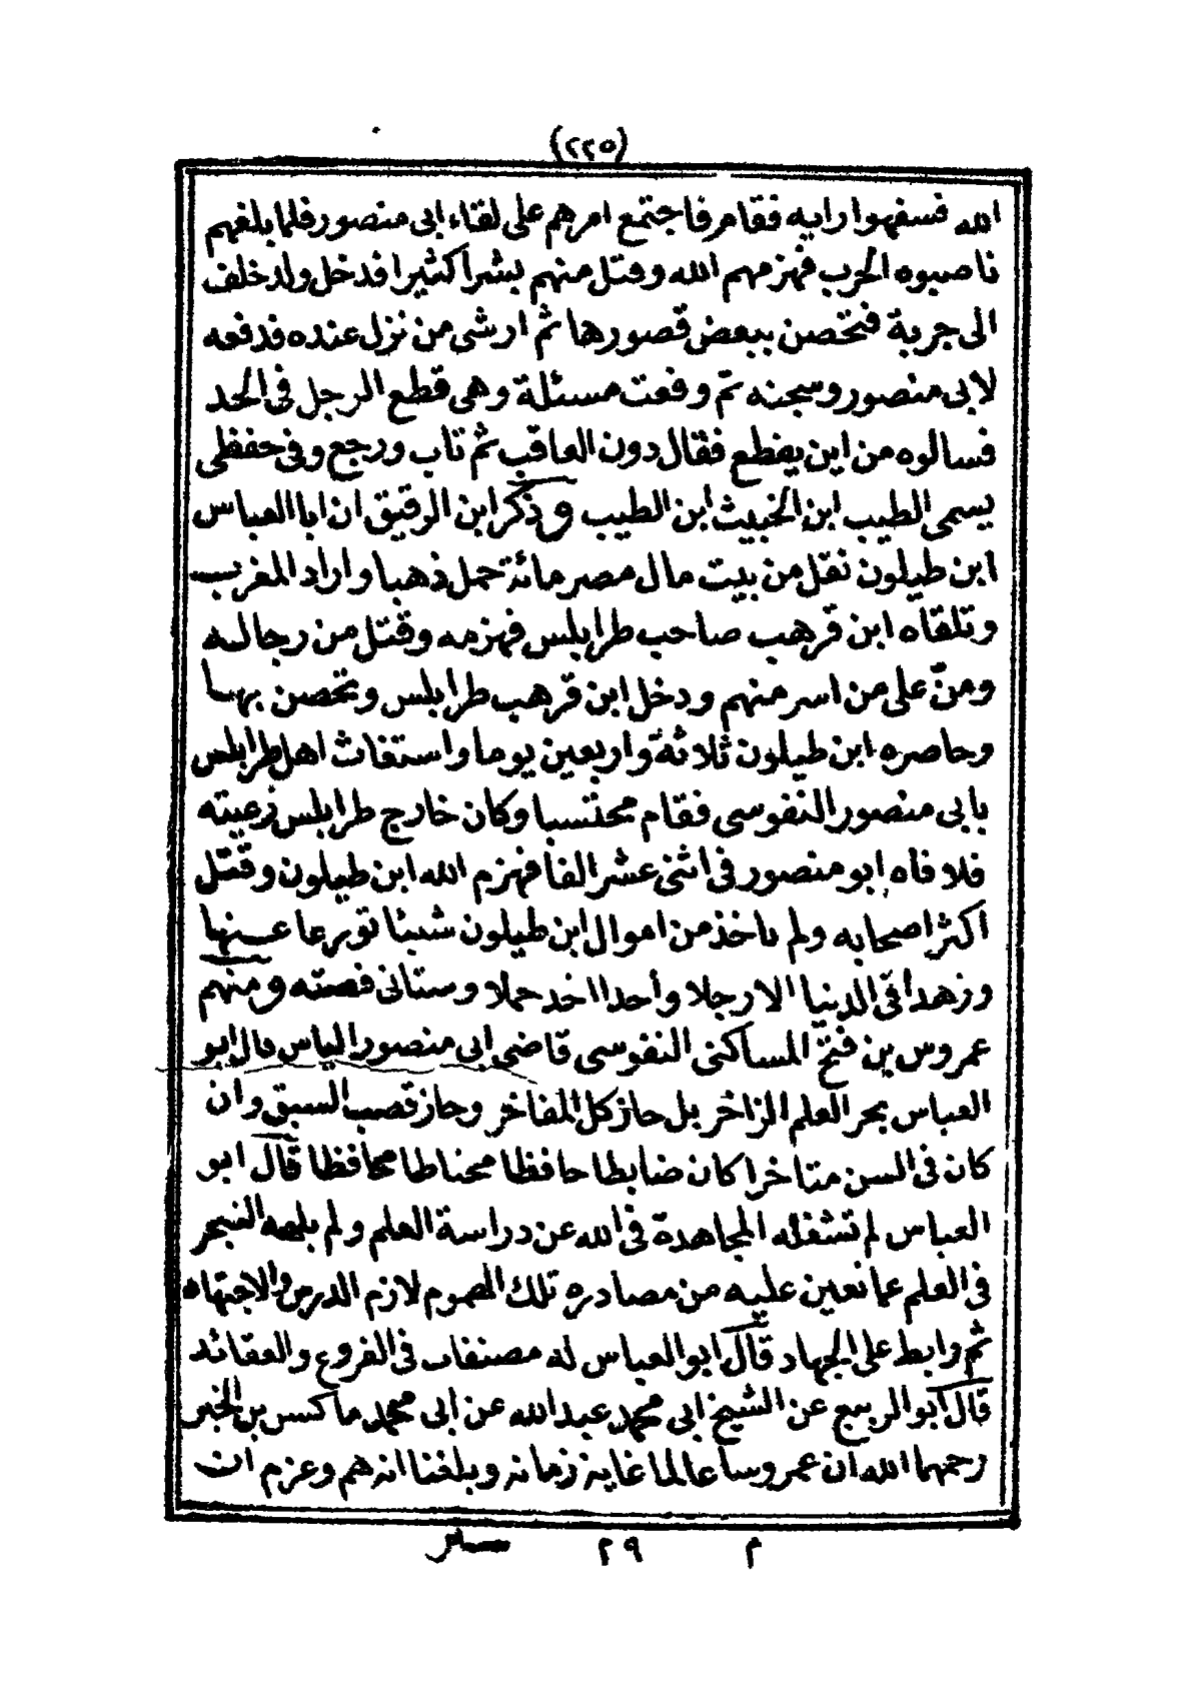 (٢٢٥)
الله فسفهوا رايه فقام فاجتمع امرهم على لقاء ابى منصور فلما بلغهم
ناصبوه الحرب فهزمهم الله وقتل منهم بشرا كثيرا فدخل ولد خلف
الى جربة فتحصن ببعض قصورها ثم ارشى من نزل عنده فدفعه
لابى منصور وسجنه ثم وقعت مسئلة وهى قطع الرجل فى الحد
فسالوه من اين يقطع فقال دون العاقب ثم تاب ورجع وفى حفظى
يسمى الطيب ابن الخبيث ابن الطيب وذكر ابن الرقيق ان ابا العباس
ابن طيلون نقل من بيت مال مصر مائة حمل ذهبا واراد المغرب
وتلقاه ابن قرهب صاحب طرابلس فهزمه وقتل من رجاله
ومنّ على من اسر منهم ودخل ابن قرهب طرابلس وتحصن بها
وحاصره ابن طيلون ثلاثة واربعين يوما واستغاث اهل طرابلس
بابى منصور النفوسى فقام محتسبا وكان خارج طرابلس رعيته
فلاقاه ابو منصور فى اثنى عشر الفا فهزم الله ابن طيلون وقتل
اكثر اصحابه ولم ياخذ من اموال ابن طيلون شيئا تورعا عنها
وزهدا فى الدنيا الا رجلا واحدا اخد حملا وستاتى قصته ومنهم
عمروس بن فتح المساكنى النفوسى قاضى ابى منصور الياس قال ابو
العباس بحر العلم الزاخر بل حاز كل المفاخر وحاز قصب السبق وان
كان فى السن متاخرا كان ضابطا حافظا محتاطا محافظا قال ابو
العباس لم تشغله المجاهدة فى الله عن دراسة العلم ولم يلهه التبحر
فى العلم عما تعين عليه من مصادره تلك الهموم لازم الدرس والاجتهاد
ثم وابط على الجهاد قال ابو العباس له مصنفات فى الفروع والعقائد
قال ابو الربيع عن الشيخ ابى محمد عبد الله عن ابى محمد ماكسن بن الخير
رحمهما الله ان عمروسا عالما غاية زمانه وبلغنا انه هم وعزم ان
م ٢٩ سير